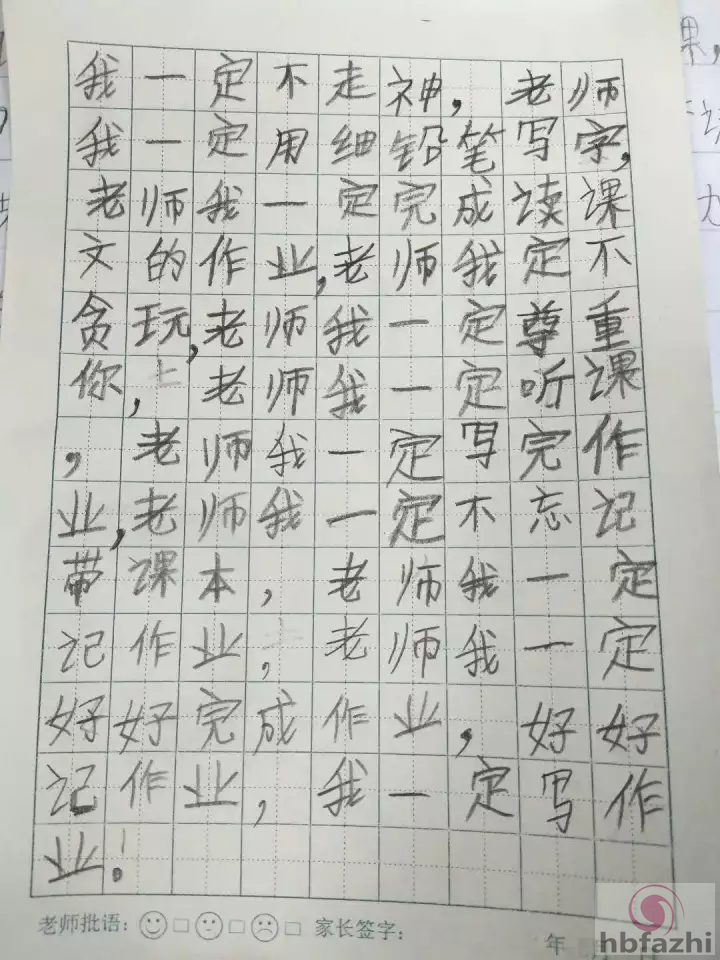 我一定不走神,老师
我一定用细铅笔写字,
老师我一定完成读课
文的作业,老师我定不
贪玩,老师我一定尊重
你,老师我一定听课
,老师我一定写完作
业,老师我一定不忘记
带课本,老师我一定
记作业,老师我一定
好好完成作业,好好
记作业,我一定写作
业!
老师批语: 家长签字:
年
hbfazhi